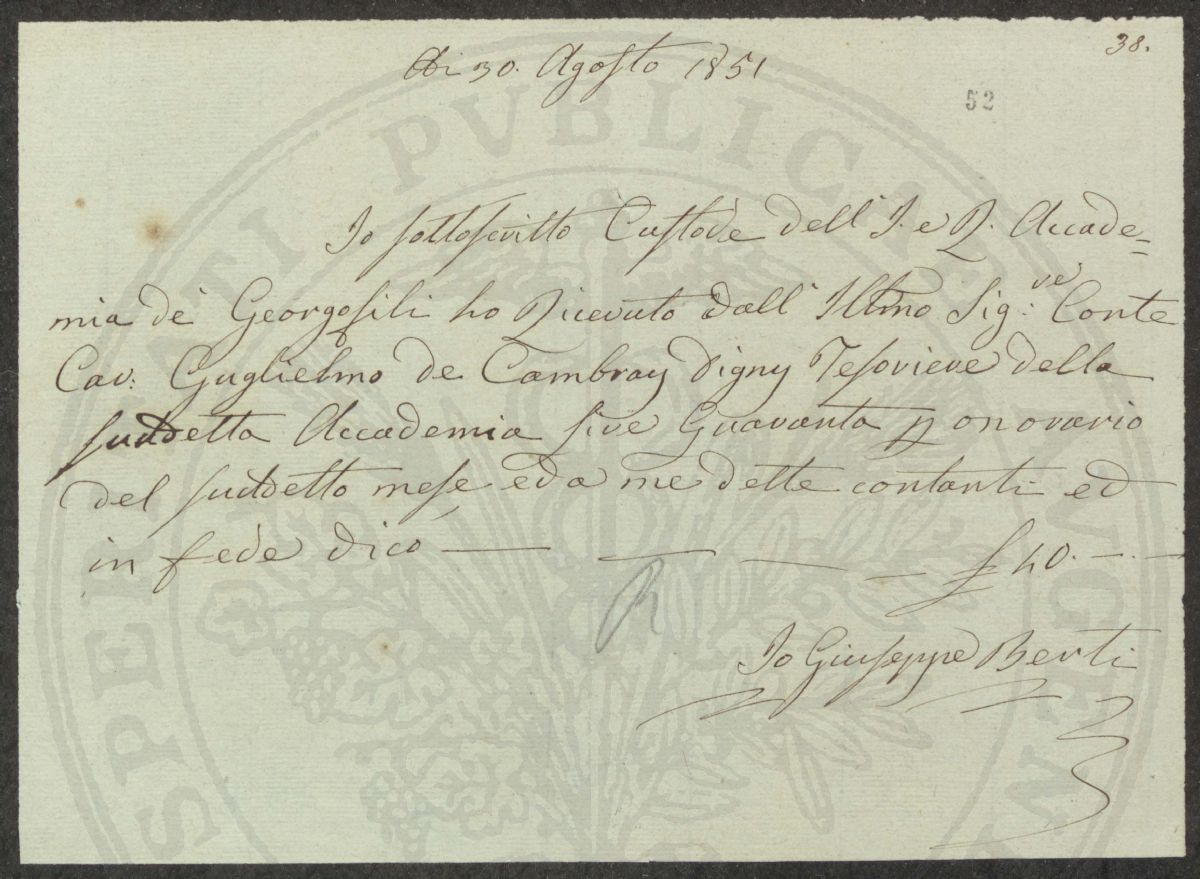 38.
Adi 30. Agosto 1851
52
Io sottoscritto Custode dell' I. e R. Accade=
mia de Georgofili ho Ricevuto dall' Illmo Sig:re Conte
Cav: Guglielmo de Cambray Digny Tesoriere della
suddetta Accademia lire Quaranta p onorario
del suddetto mese, ed a me dette contanti ed
in fede dico — — — — £ 40. — . —
R
Io Giuseppe Berti
PROSPERITATI PVBLICAE AVGENDAE